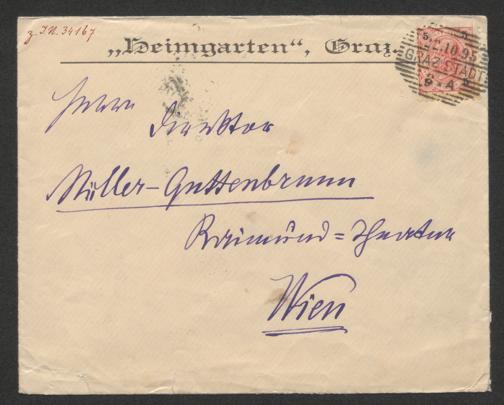 z J.N. 34167
„Heimgarten“, Graz.
10 95
GRAZ STADT
Herrn
Direktor
Müller-Guttenbrunn
Raimund=Theater
Wien